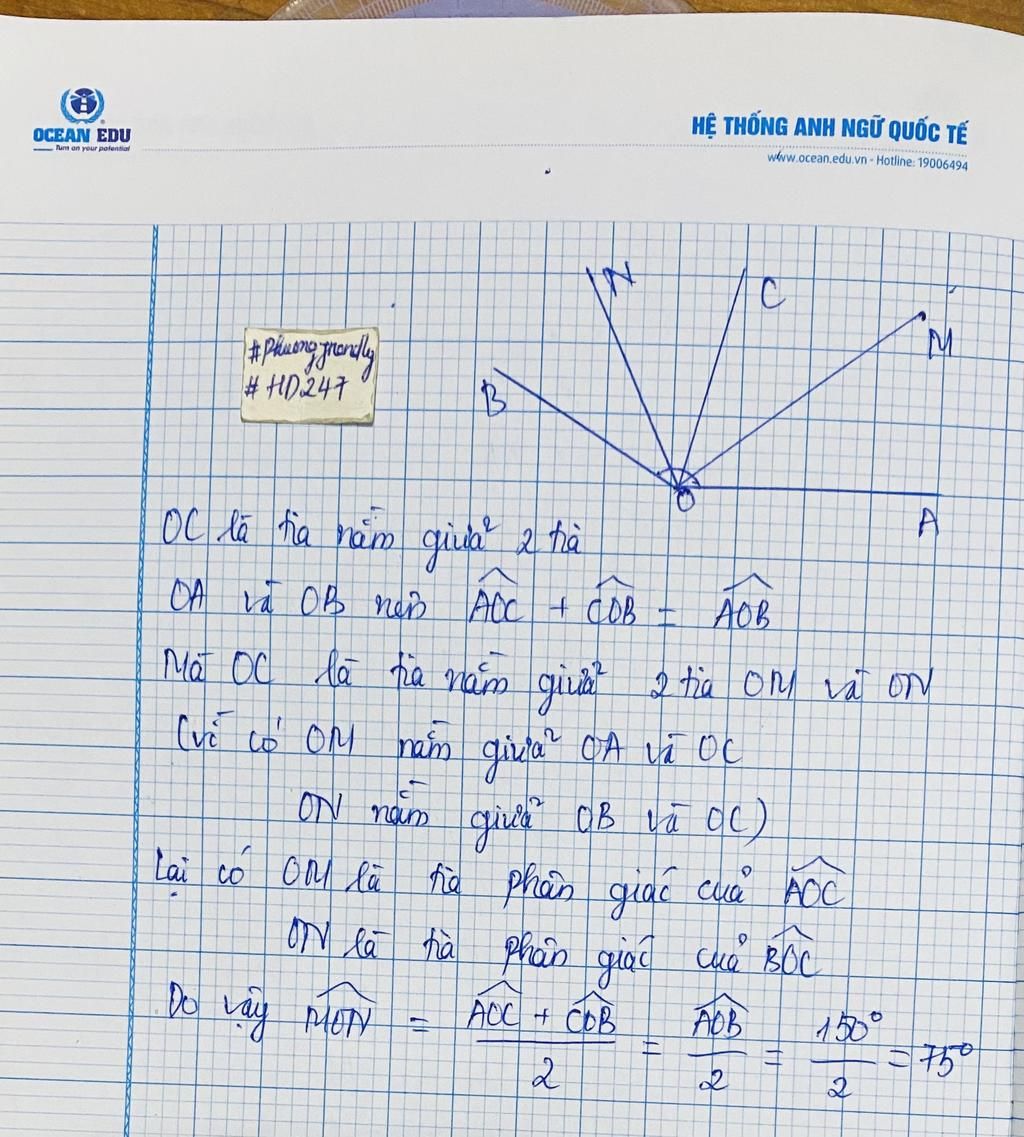 OCEAN EDU
Turn on your potential
HỆ THỐNG ANH NGỮ QUỐC TẾ
www.ocean.edu.vn - Hotline: 19006494
N
C
M
B
O
A
#HD247
OC là tia nằm giữa 2 tia
OA và OB nên AOC + COB = AOB
Mà OC là tia nằm giữa 2 tia OM và ON
(vì có OM nằm giữa OA và OC
ON nằm giữa OB và OC)
Lại có OM là tia phân giác của AOC
ON là tia phân giác của BOC
Do vậy MON = (AOC + COB)/2 = AOB/2 = 150°/2 = 75°